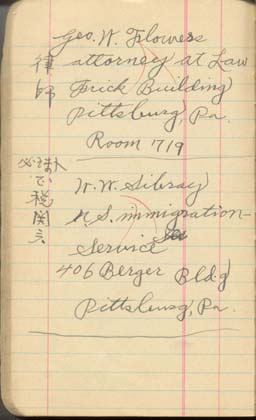 Geo. W. Flowers
attorney at Law
Frick Building
Pittsburg, Pa.
Room 719
律師
W. W. Sibray
U.S. immigration
Service
406 Berger Bldg
Pittsburg, Pa.
税関